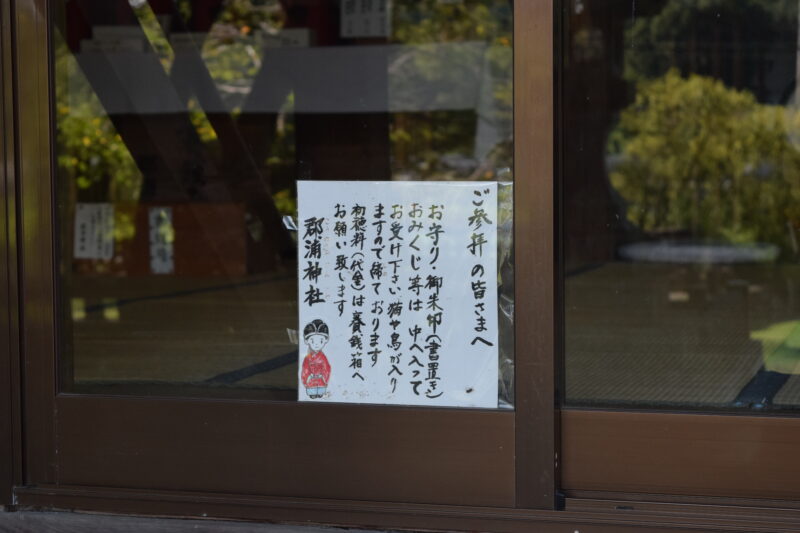 ご参拝の皆さまへ
お守り・御朱印(書置き)
おみくじ等は 中へ入って
お受け下さい 猫や鳥が入り
ますので締ております
初穂料(代金)は賽銭箱へ
お願い致します
郡浦神社